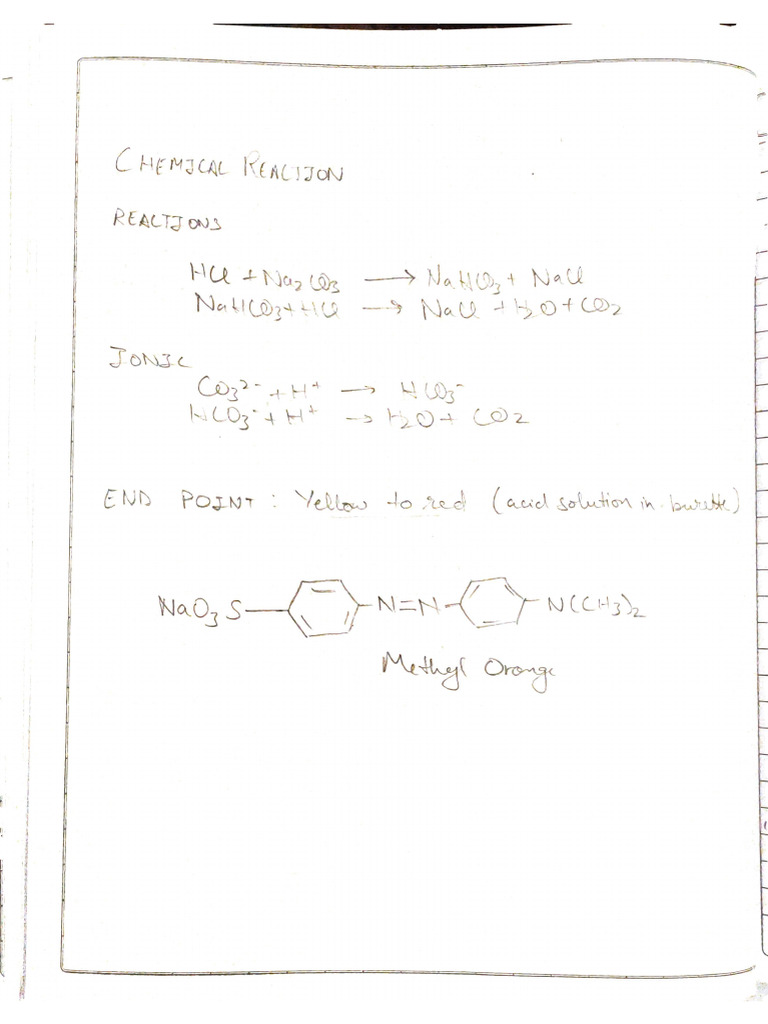 CHEMICAL REACTION
REACTIONS
HCl + Na2CO3 → NaHCO3 + NaCl
NaHCO3 + HCl → NaCl + H2O + CO2
IONIC
CO3²⁻ + H⁺ → HCO3⁻
HCO3⁻ + H⁺ → H2O + CO2
END POINT : Yellow to red (acid solution in burette)
NaO3S N=N N(CH3)2
Methyl Orange